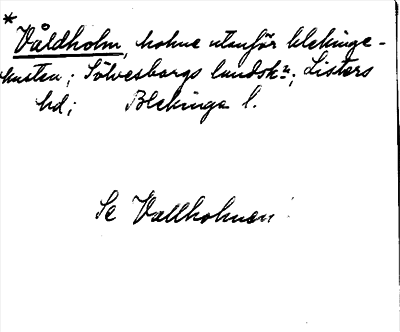 * Våldholm, holme utanför blekinge-
kusten; Sölvesborgs landskn; Listers
hd; Blekinge l.
Se Vallholmen